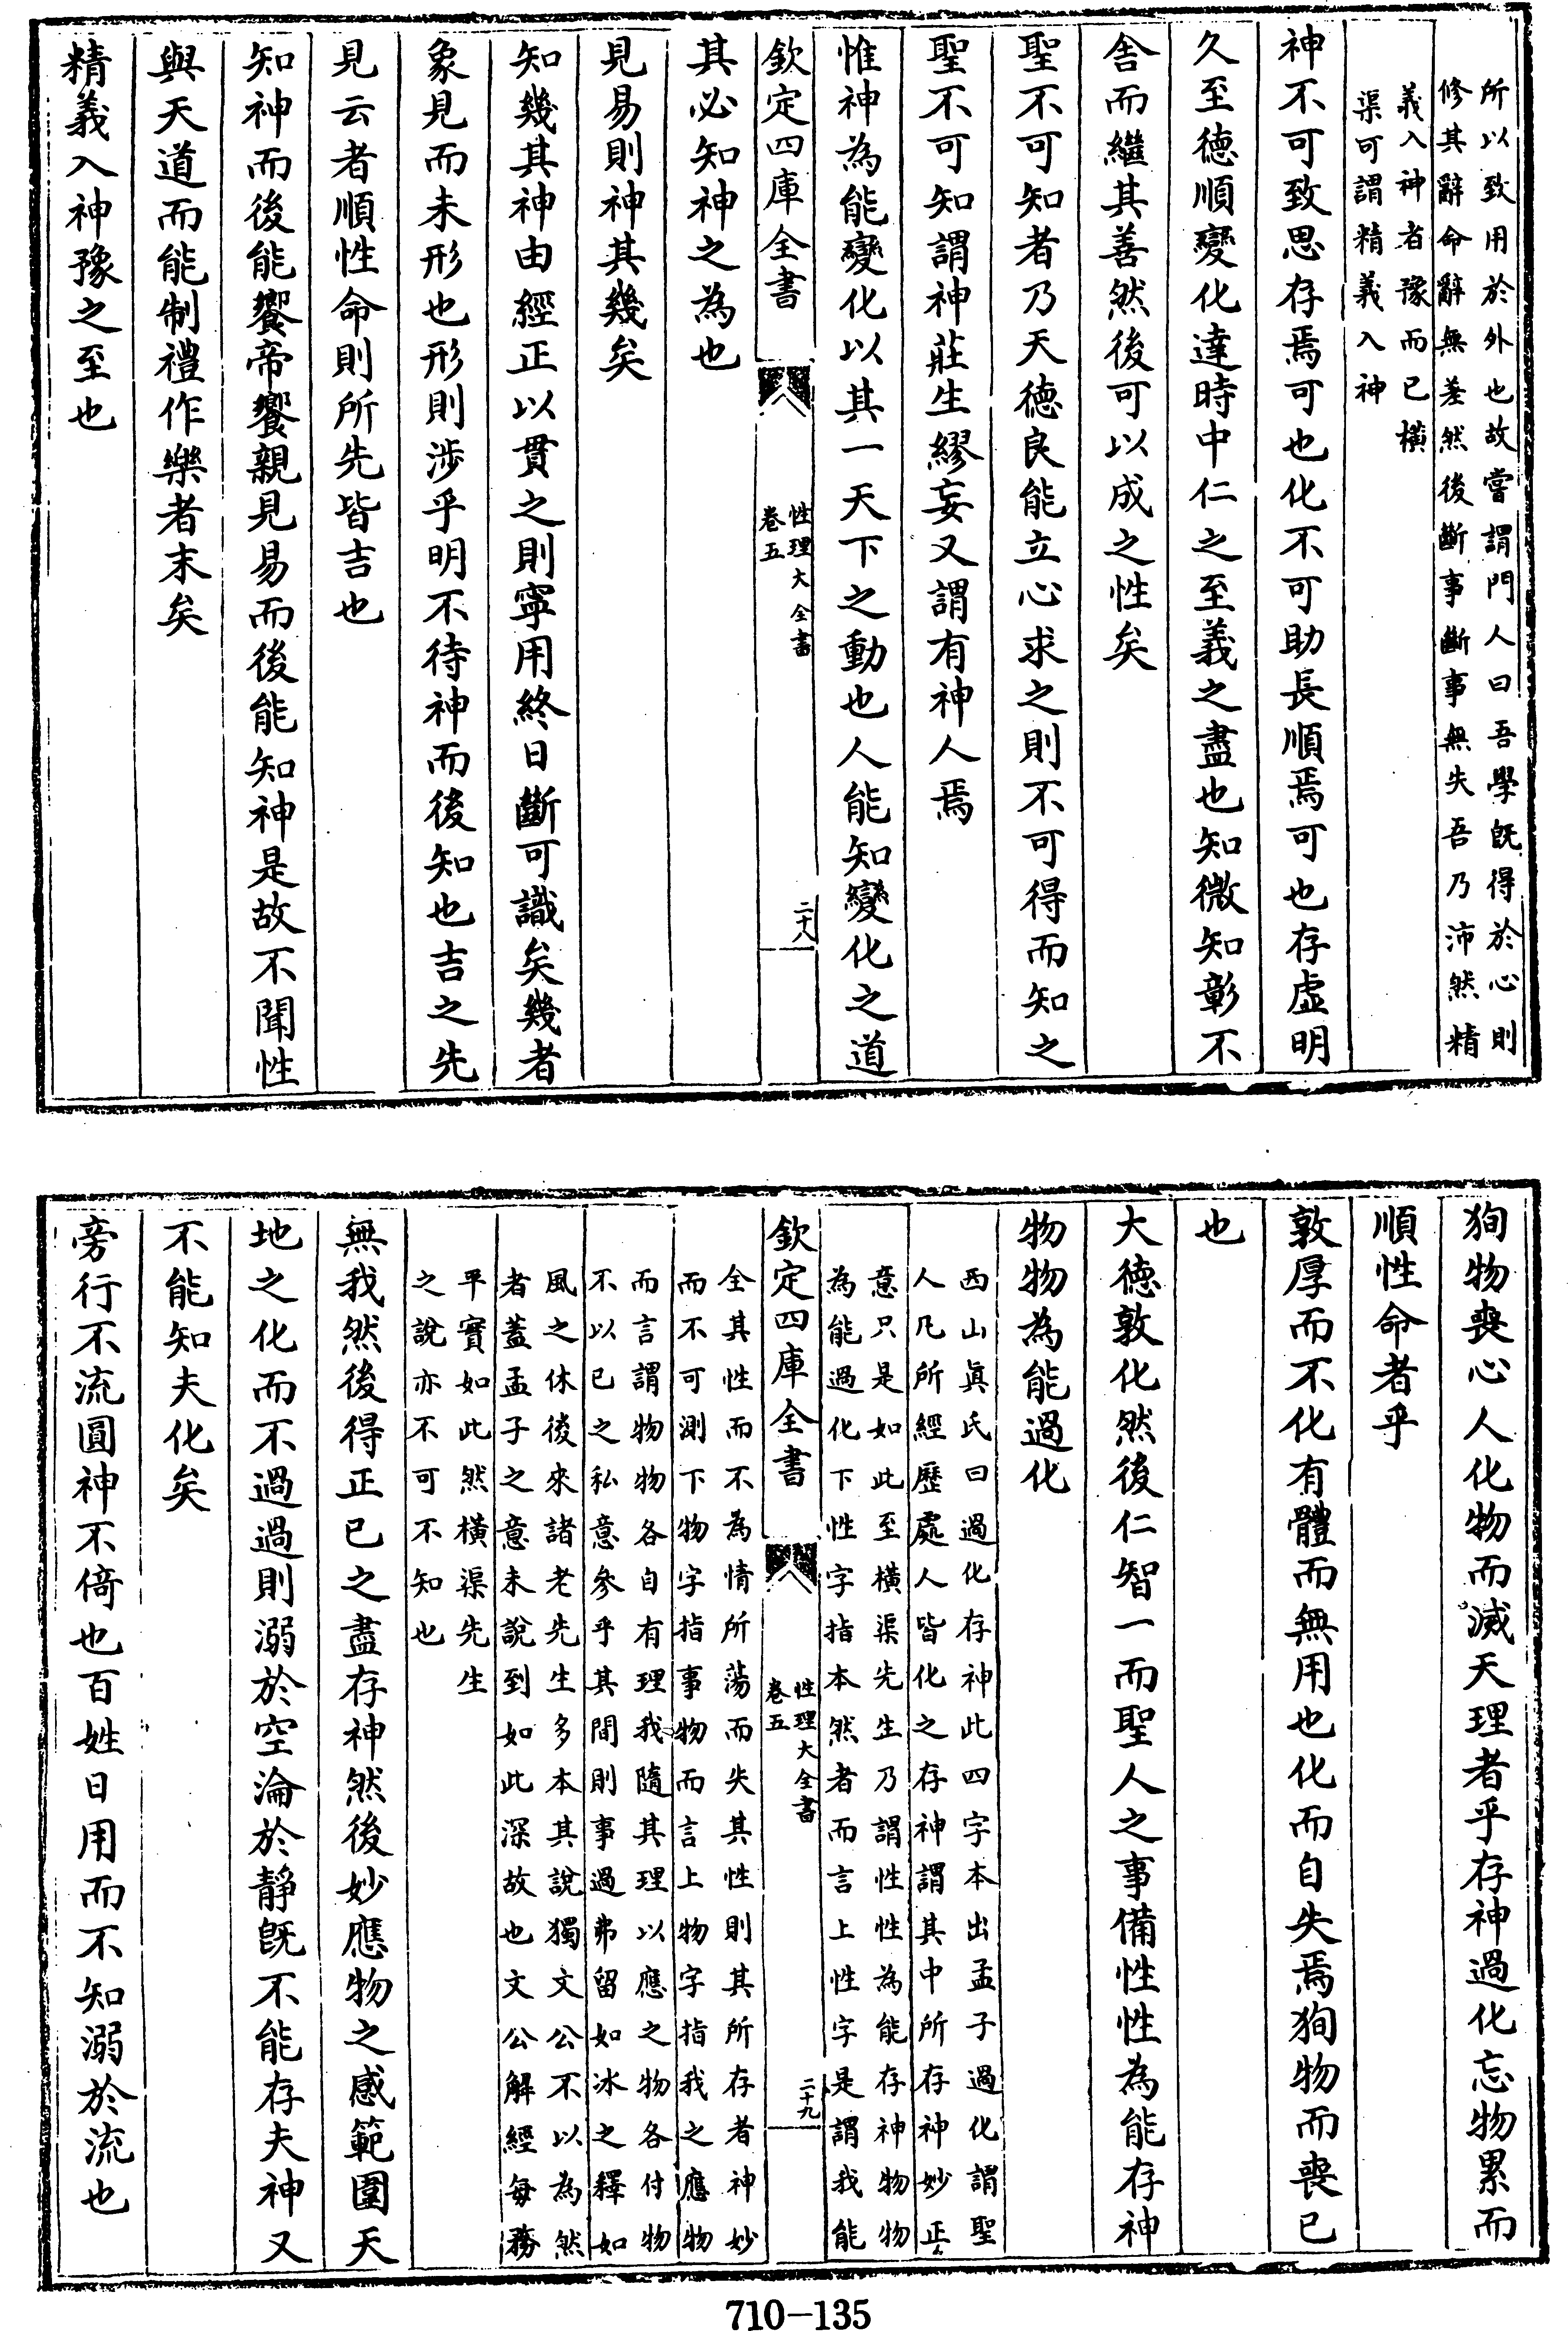 所以致用於外也故嘗謂門人曰吾學旣得於心則
修其辭命辭無差然後斷事斷事無失吾乃沛然精
義入神者豫而已橫
渠可謂精義入神
神不可致思存焉可也化不可助長順焉可也存虛明
久至德順變化達時中仁之至義之盡也知微知彰不
舎而繼其善然後可以成之性矣
聖不可知者乃天德良能立心求之則不可得而知之
聖不可知謂神莊生繆妄又謂有神人焉
惟神為能變化以其一天下之動也人能知變化之道
欽定四庫全書
性理大全書
卷五
二十八
其必知神之為也
見易則神其幾矣
知幾其神由經正以貫之則寧用終日斷可識矣幾者
象見而未形也形則涉乎明不待神而後知也吉之先
見云者順性命則所先皆吉也
知神而後能饗帝饗親見易而後能知神是故不聞性
與天道而能制禮作樂者末矣
精義入神豫之至也
狥物喪心人化物而滅天理者乎存神過化忘物累而
順性命者乎
敦厚而不化有體而無用也化而自失焉狥物而喪已
也
大德敦化然後仁智一而聖人之事備性性為能存神
物物為能過化
西山眞氏曰過化存神此四字本出孟子過化謂聖
人凡所經歷處人皆化之存神謂其中所存神妙正
意只是如此至橫渠先生乃謂性性為能存神物物
為能過化下性字指本然者而言上性字是謂我能
欽定四庫全書
性理大全書
卷五
二十九
全其性而不為情所蕩而失其性則其所存者神妙
而不可測下物字指事物而言上物字指我之應物
而言謂物物各自有理我隨其理以應之物各付物
不以已之私意參乎其間則事過弗留如冰之釋如
風之休後來諸老先生多本其說獨文公不以為然
者蓋孟子之意未說到如此深故也文公解經每務
平實如此然橫渠先生
之說亦不可不知也
無我然後得正已之盡存神然後妙應物之感範圍天
地之化而不過過則溺於空淪於靜旣不能存夫神又
不能知夫化矣
旁行不流圓神不倚也百姓日用而不知溺於流也
710-135